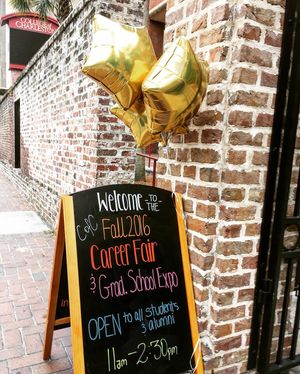 COLLEGE of
CHARLESTON
Welcome TO THE
CofC Fall 2016
Career Fair
& Grad. School Expo
OPEN to all students
& alumni
11am - 2:30pm